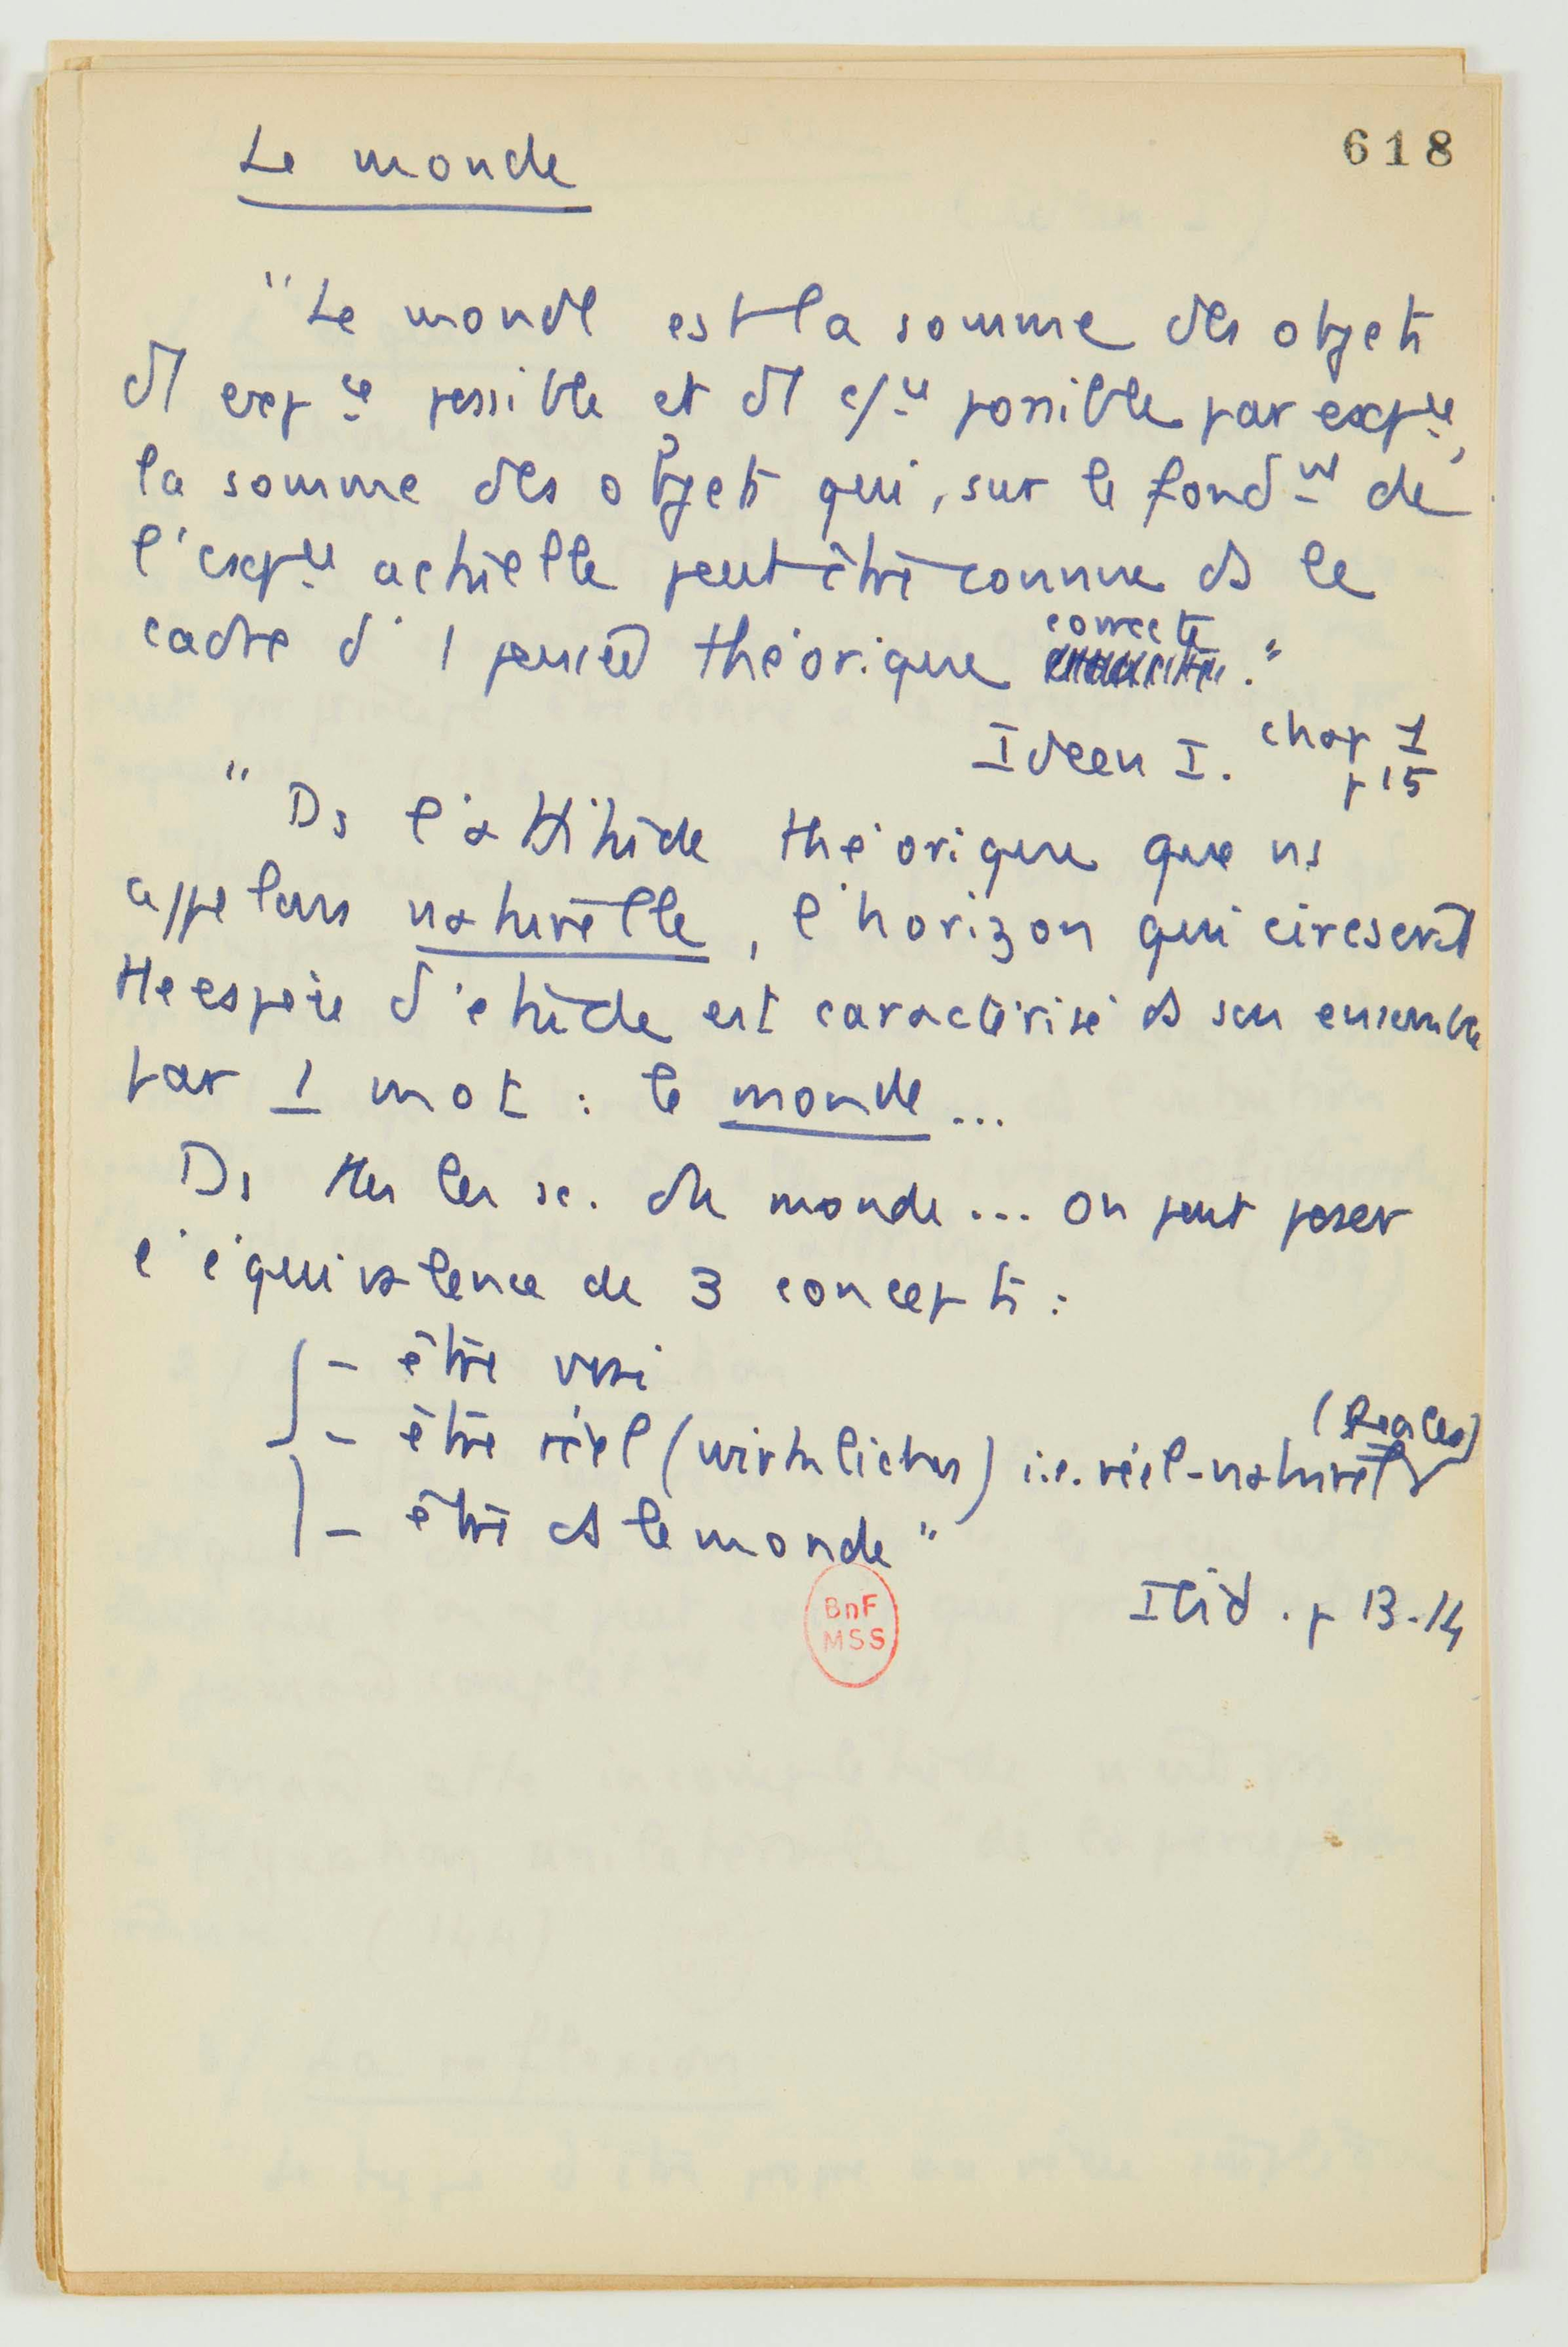 618
Le monde
"Le monde est la somme des objets
d'expce possible et d' c/ce possible par expce,
la somme des objets qui, sur le fondmt de
l'expce actuelle peut être connue ds le
cadre d'1 pensée théorique correcte."
Ideen I. chap 1
p 15
"Ds l'attitude théorique que ns
appelons naturelle, l'horizon qui circonscrit
tte espèce d'étude est caractérisé ds son ensemble
par 1 mot : le monde...
Ds ttes les sc. du monde... on peut poser
l'équivalence de 3 concepts :
- être vrai
- être réel (wirkliches) i.e. réel-naturel (Reales)
- être ds le monde"
BnF
MSS
Ibid. p 13-14